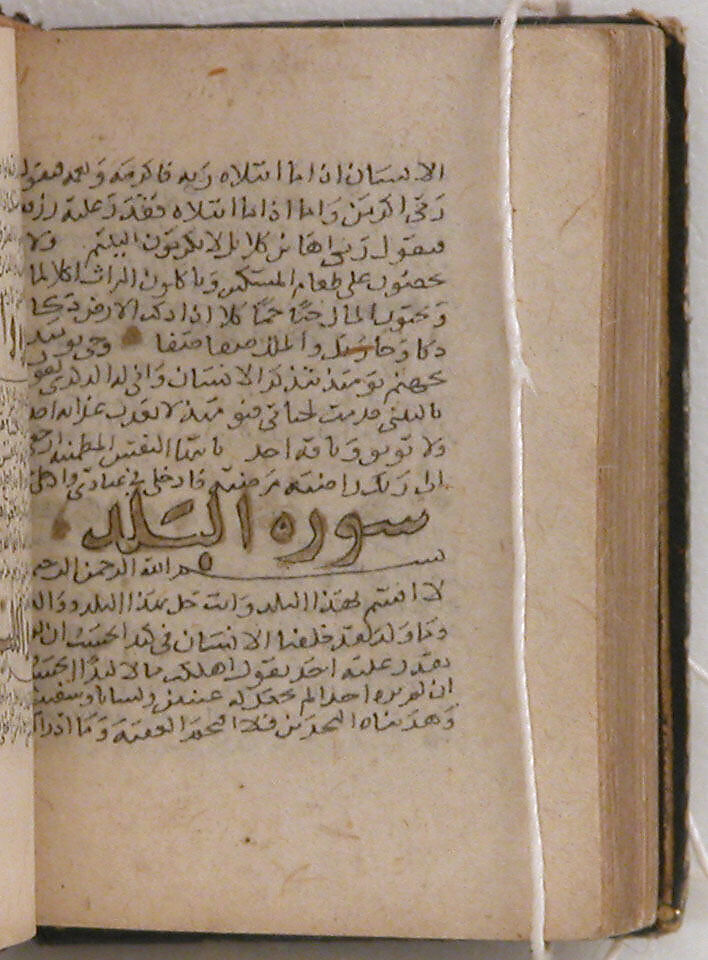 الانسان اذا ما ابتلاه ربه فاكرمه ونعمه فيقول
ربي اكرمن واما اذا ما ابتلاه فقدر عليه رزقه
فيقول ربي اهانن كلا بل لا يكرمون اليتيم ولا
يحضون على طعام المسكين وياكلون التراث اكلا لما
ويحبون المال حبا جما كلا اذا دكت الارض دكا
دكا وجا ربك والملك صفا صفا وجى يومئذ
بجهنم يومئذ يتذكر الانسان وانى له الذكرى يقول
ياليتني قدمت لحياتي فيومئذ لا يعذب عذابه احد
ولا يوثق وثاقه احد ياايتها النفس المطمئنة ارجعي
الى ربك راضية مرضية فادخلي في عبادي وادخلي
سورة البلد
بسم الله الرحمن الرحيم
لا اقسم بهذا البلد وانت حل بهذا البلد ووالد
وما ولد لقد خلقنا الانسان في كبد ايحسب ان لن
يقدر عليه احد يقول اهلكت مالا لبدا ايحسب
ان لم يره احد الم نجعل له عينين ولسانا وشفتين
وهديناه النجدين فلا اقتحم العقبة وما ادراك